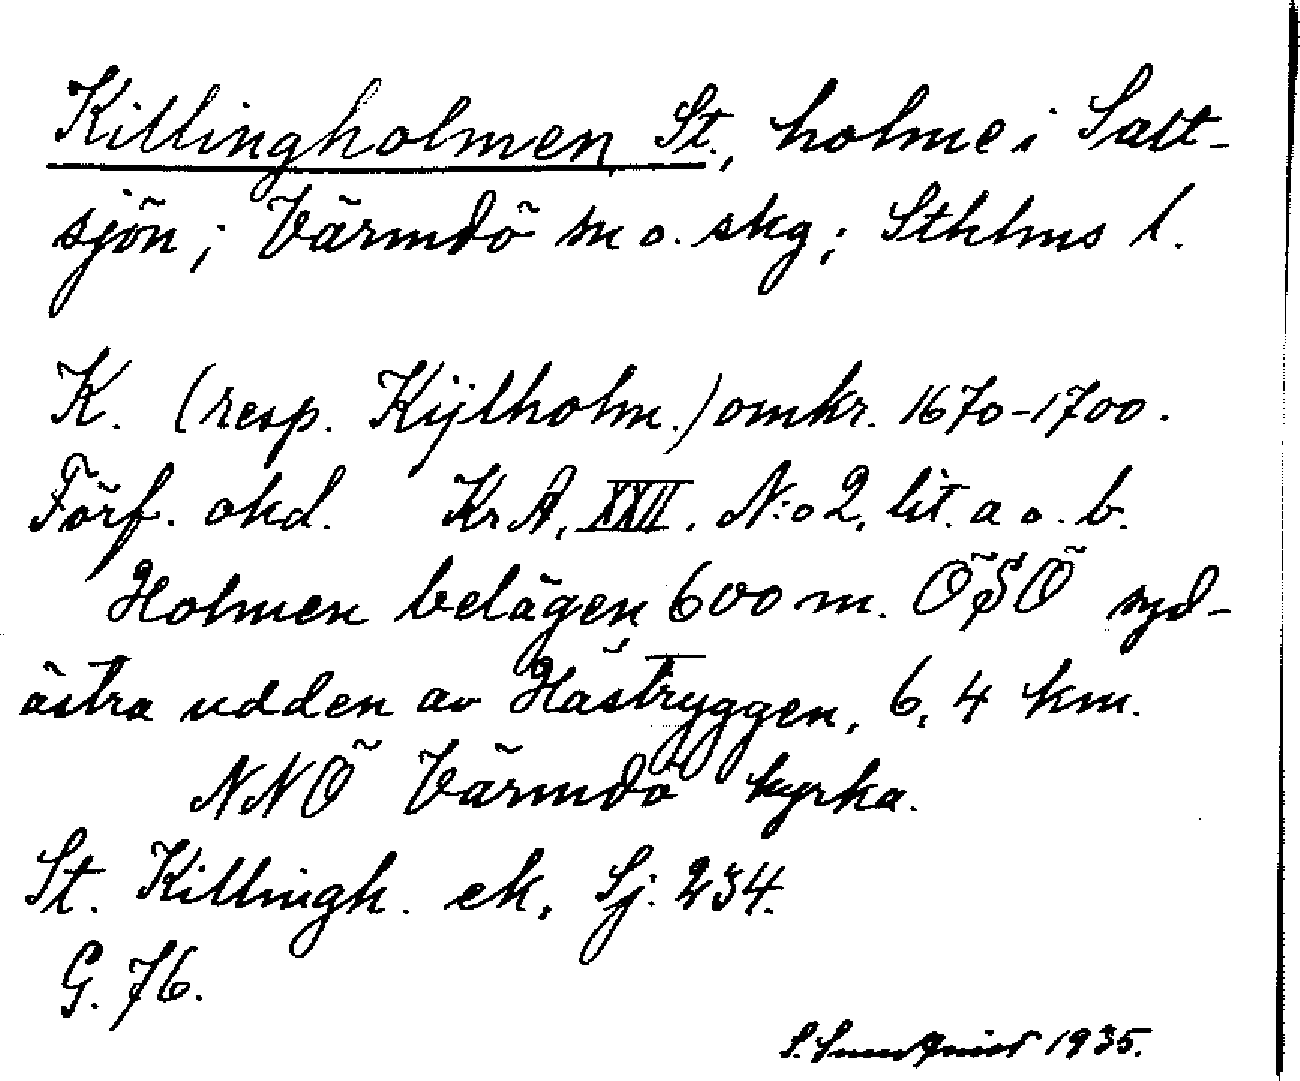 Killingholmen, St., holme i Salt-
sjön; Värmdö sn o. skg; Sthlms l.
K. (resp. Kÿlholm.) omkr. 1670-1700.
Förf. okd. KrA, XXII. N:o 2, lit. a o. b.
Holmen belägen 600 m. ÖSÖ syd-
östra udden av Hästryggen, 6,4 km.
NNÖ Värmdö kyrka.
St. Killingh. ek. Sj. 234.
G. 76.
S. 1935.